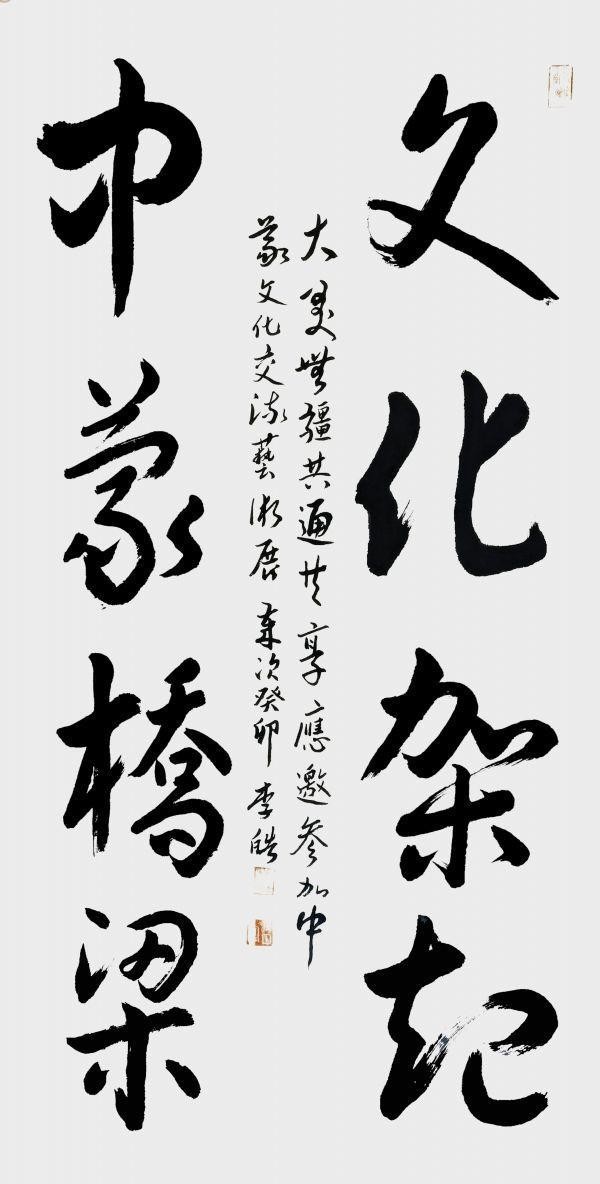 文化架起
中蒙橋梁
大美無疆共通共享應邀參加中
蒙文化交流藝術展 歲次癸卯 李皓